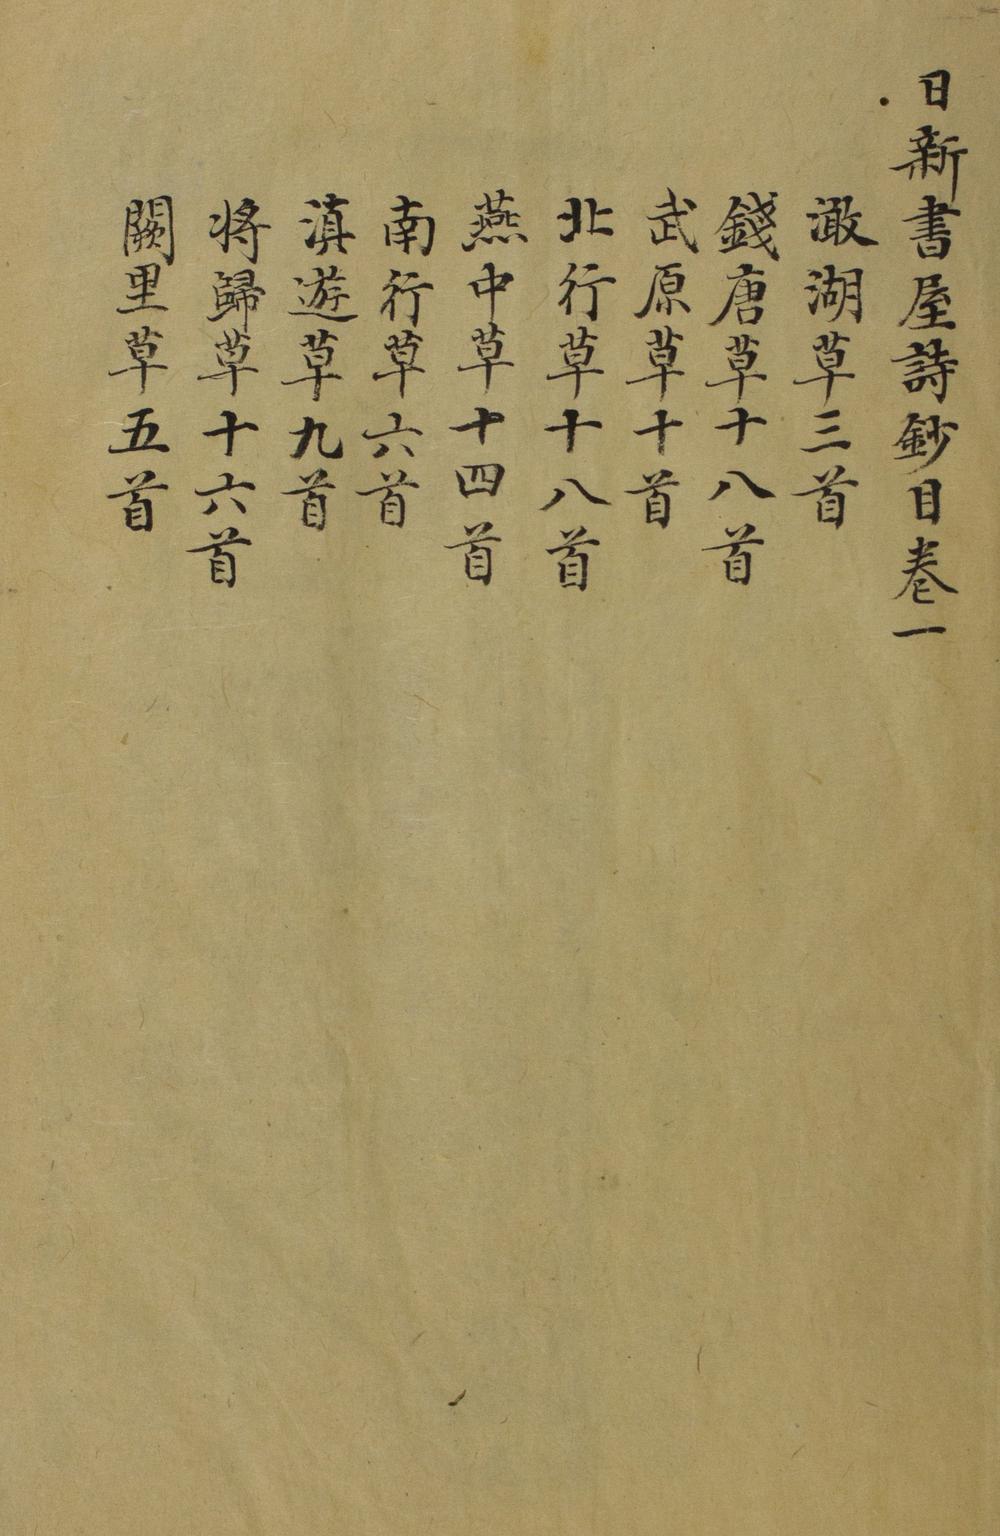 日新書屋詩鈔目卷一
澉湖草三首
錢唐草十八首
武原草十首
北行草十八首
燕中草十四首
南行草六首
滇遊草九首
将歸草十六首
闕里草五首